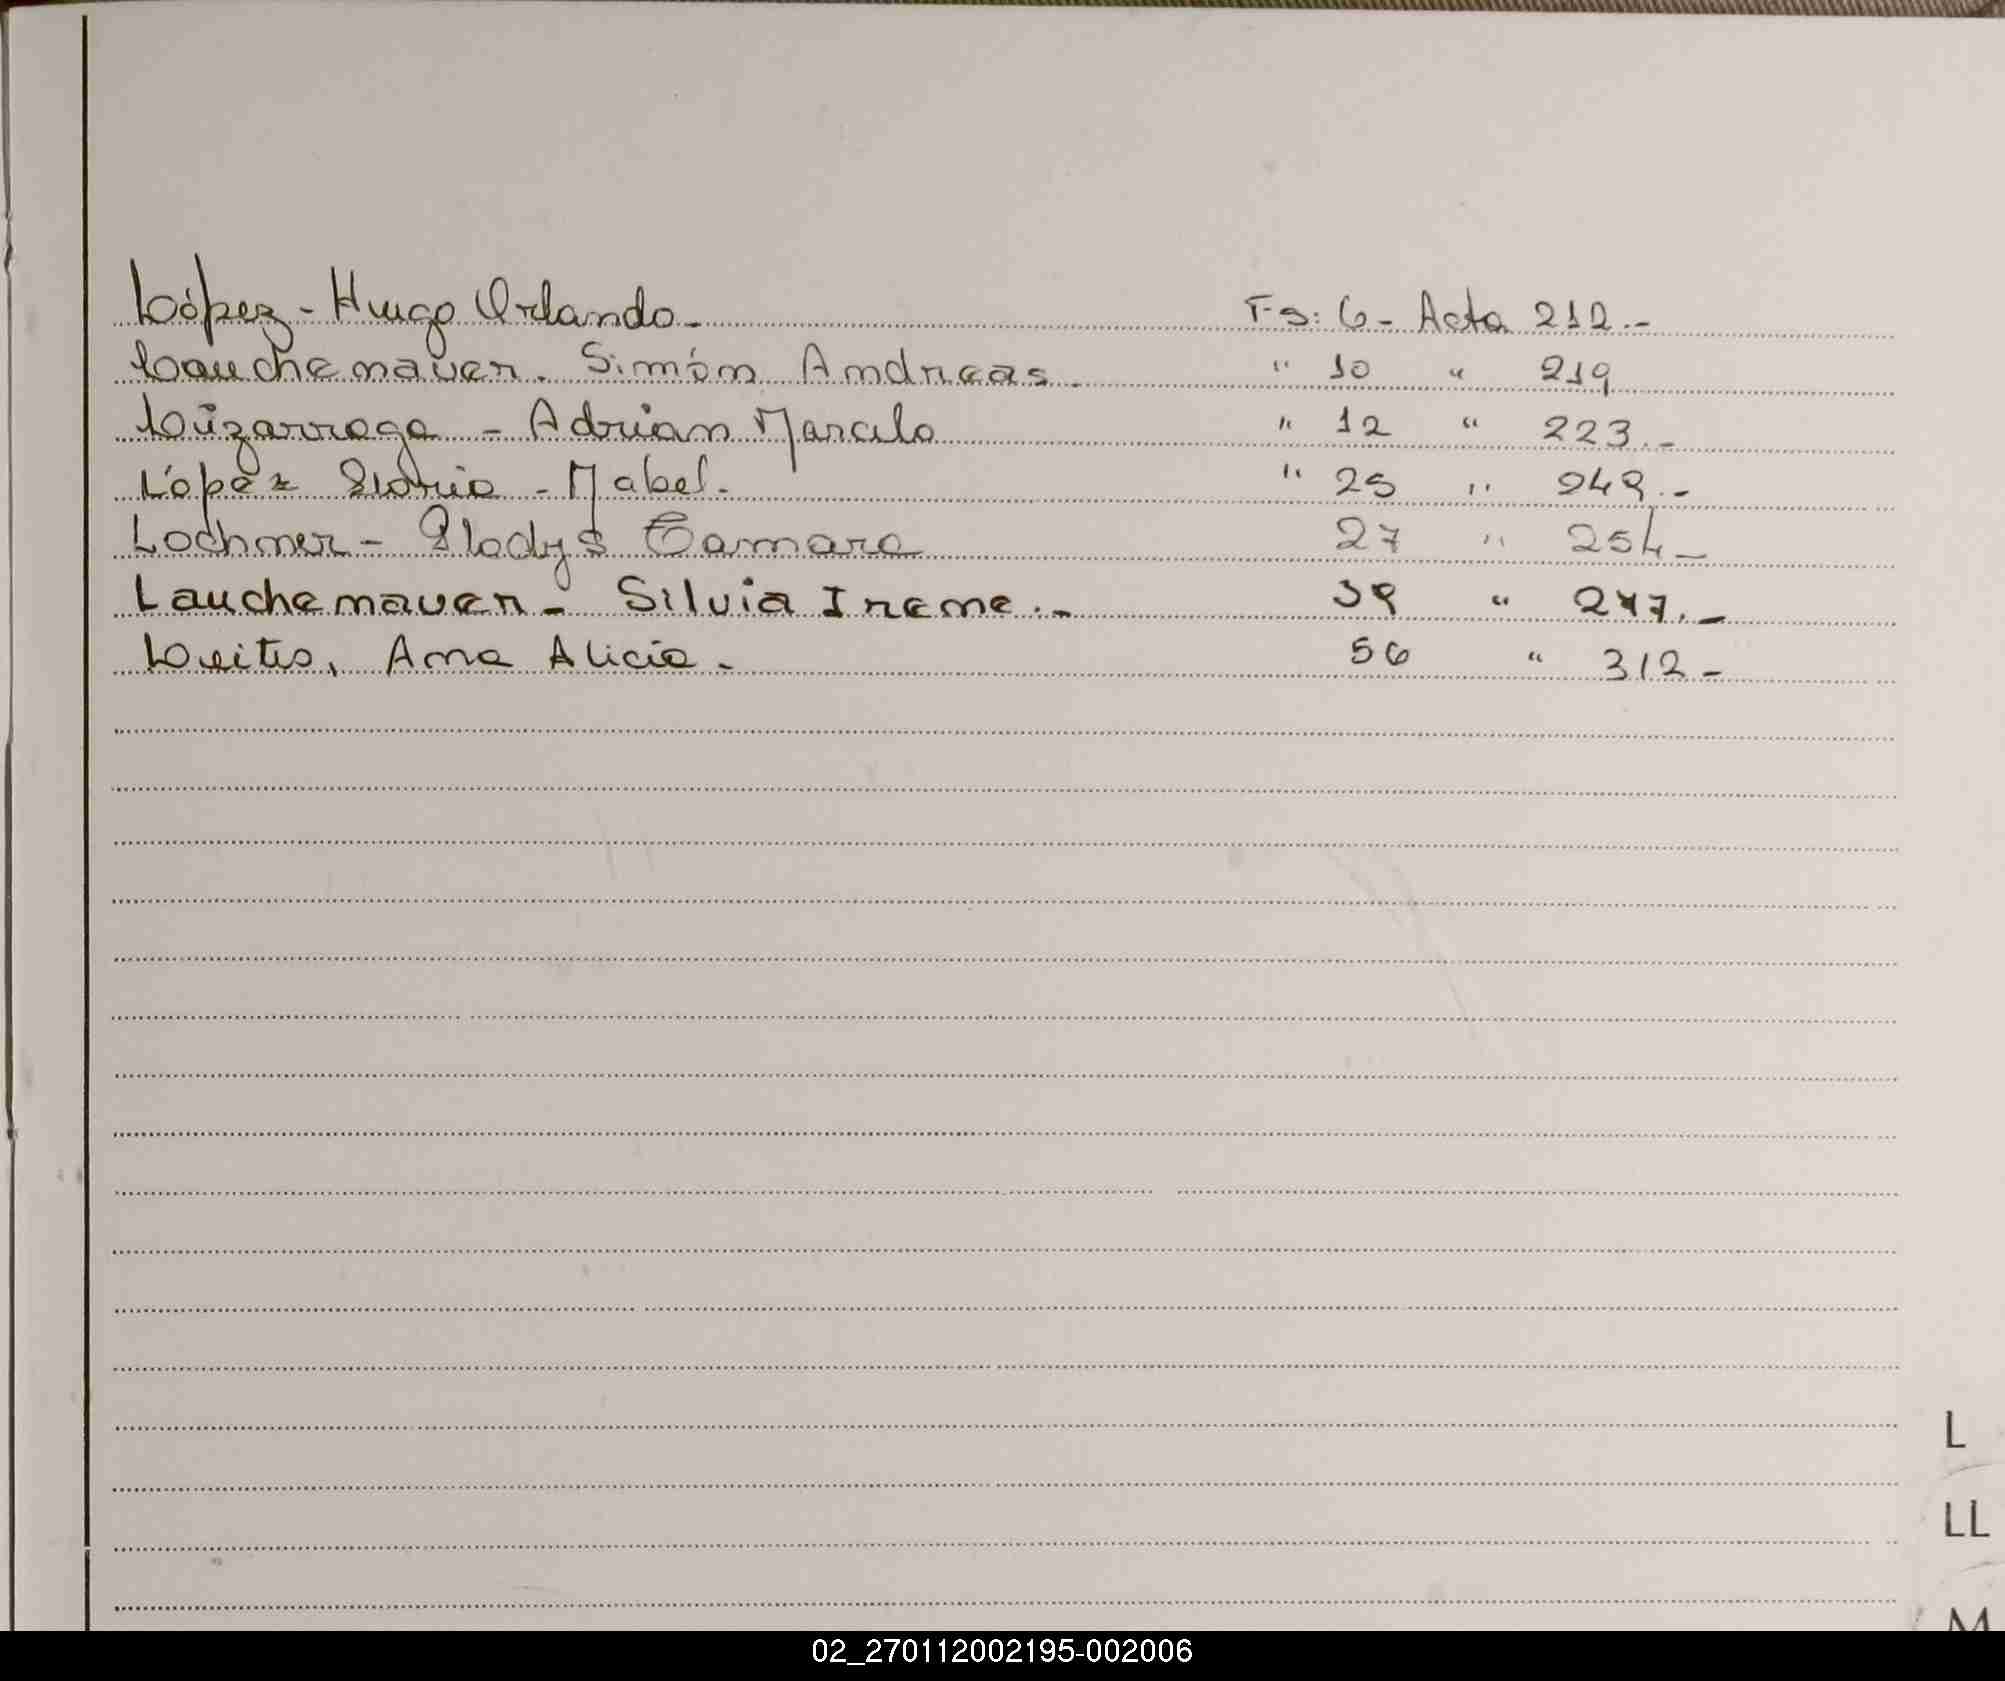 López - Hugo Orlando. Fs: 6 - Acta 212.-
Lauchenauer. Simón Andreas. " 10 " 219
Luizarraga - Adrian Marcelo " 12 " 223.-
López Gloria - Mabel. " 25 " 249.-
Lochner - Gladys Tamara 27 " 254-
Lauchenauer - Silvia Irene.- 39 " 277.-
Leites, Ana Alicia. 56 " 312-
L
LL
M
02_270112002195-002006